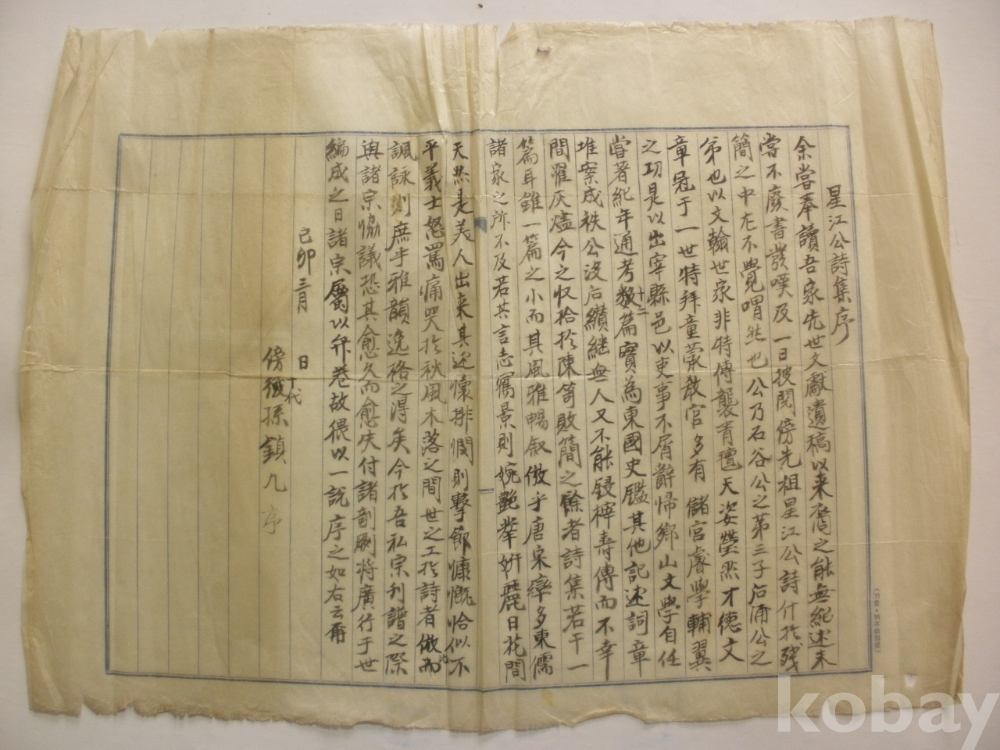 星江公詩集序
余嘗奉讀吾家先世文獻遺稿以来舊之能無紀述未
嘗不廢書發嘆及一日披閱傍先祖星江公詩什扵殘
簡之中尤不覺喟然也公乃石谷公之第三子石涌公之
弟也以文翰世家非特傳襲青氊天姿瑩然才德文
章冠于一世特拜童蒙敎官多有儲宮睿學輔翼
之功是以出宰縣邑以吏事不屑辭帰鄉山文學自任
嘗著紀年通考十二篇實為東國史鑑其他記述詞章
堆案成秩公没后纘継無人又不能鋟榟壽傳而不幸
間罹灰燼今之収拾扵陳笥敗簡之餘者詩集若干一
篇耳雖一篇之小而其風雅暢叙倣乎唐宋率多東儒
諸家之所不及若其言志寫景則婉艶㛐妍麗日花間
天然是美人出来其述懷排悶則擊節慷慨恰似不
平義士怒罵痛哭扵秋風木落之間世之工扵詩者倣而
諷詠則庶乎雅韻逸格之得矣今扵吾私宗刊譜之際
與諸宗協議恐其愈久而愈失付諸剞劂将廣行于世
編成之日諸宗属以弁卷故猥以一說序之如右云甭
己卯三月 日
傍十代孫鎮九序
kobay